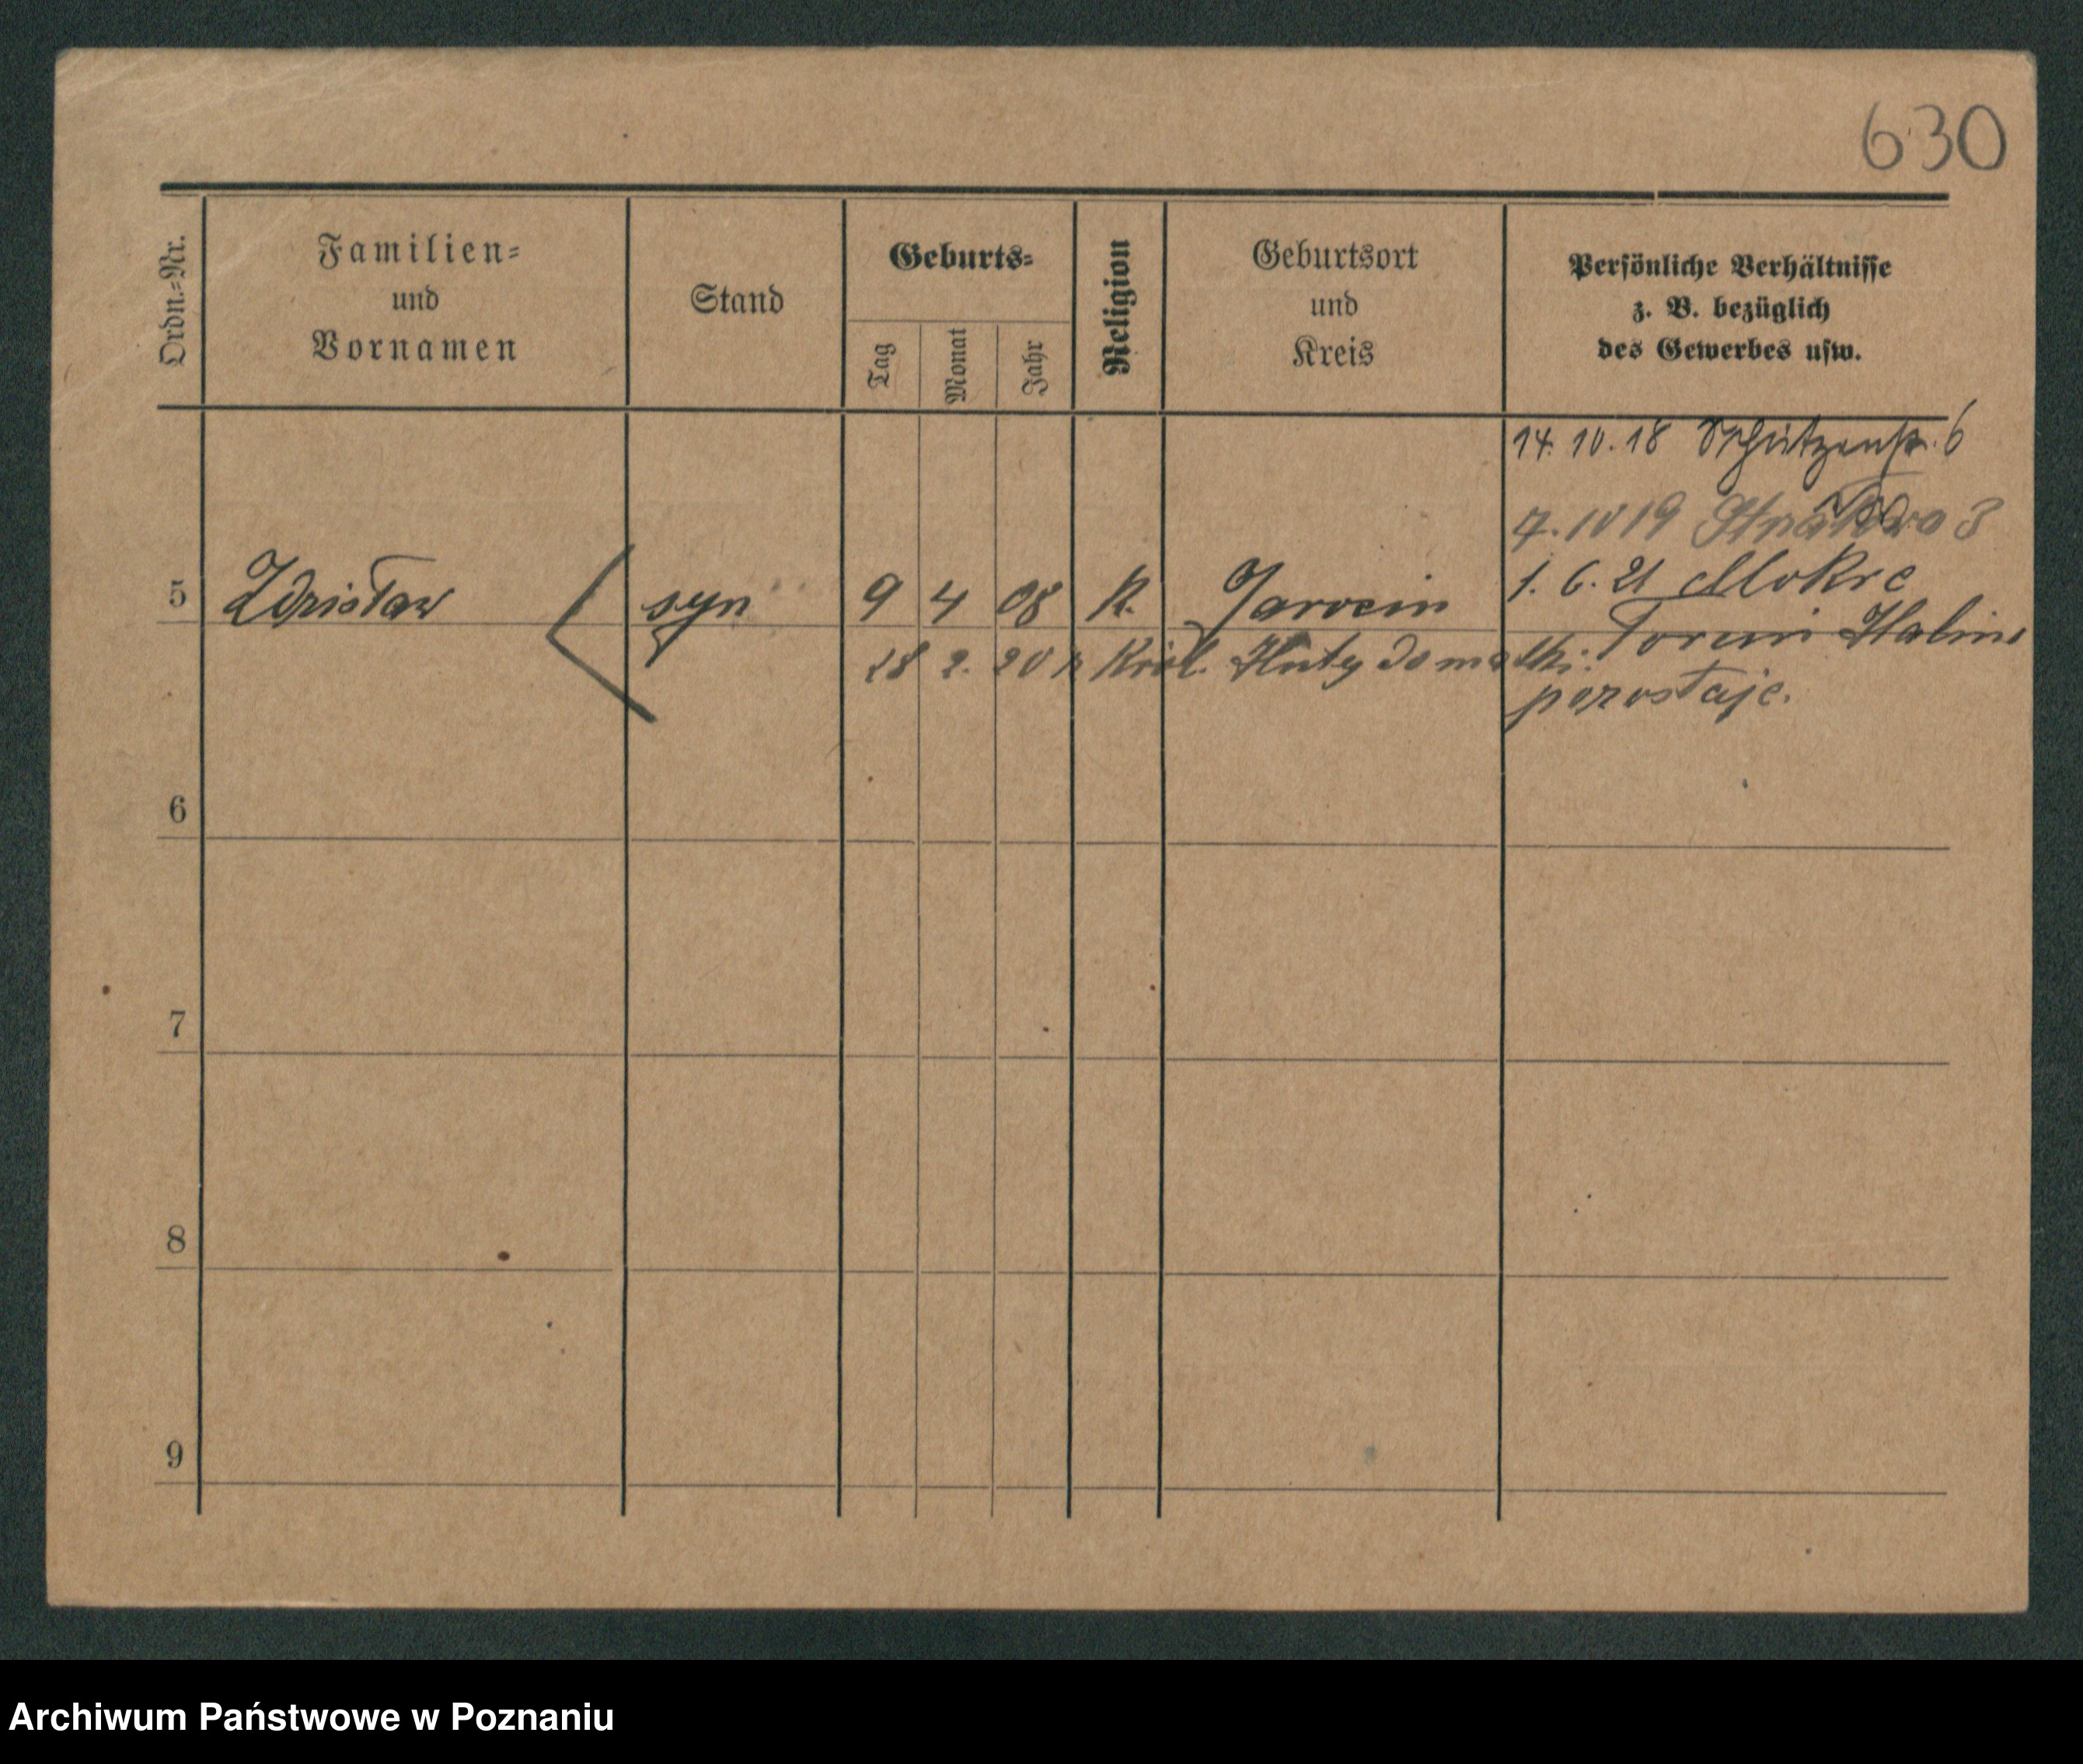 630
Ordn.-Nr.
Familien-
und
Vornamen
Stand
Geburts-
Tag
Monat
Jahr
Religion
Geburtsort
und
Kreis
Persönliche Verhältnisse
z. B. bezüglich
des Gewerbes usw.
14. 10. 18 Schützenstr. 6
7. 10 19 3
1. 6. 21 Mokre
5 Zdzisław syn 9 4 08 K. Jarocin
Toruń Halina
18 2. 20 z Król. Huty do matki.
pozostaje.
6
7
8
9
Archiwum Państwowe w Poznaniu